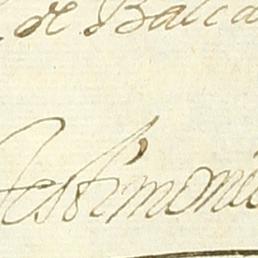 de Balca
Testimonio